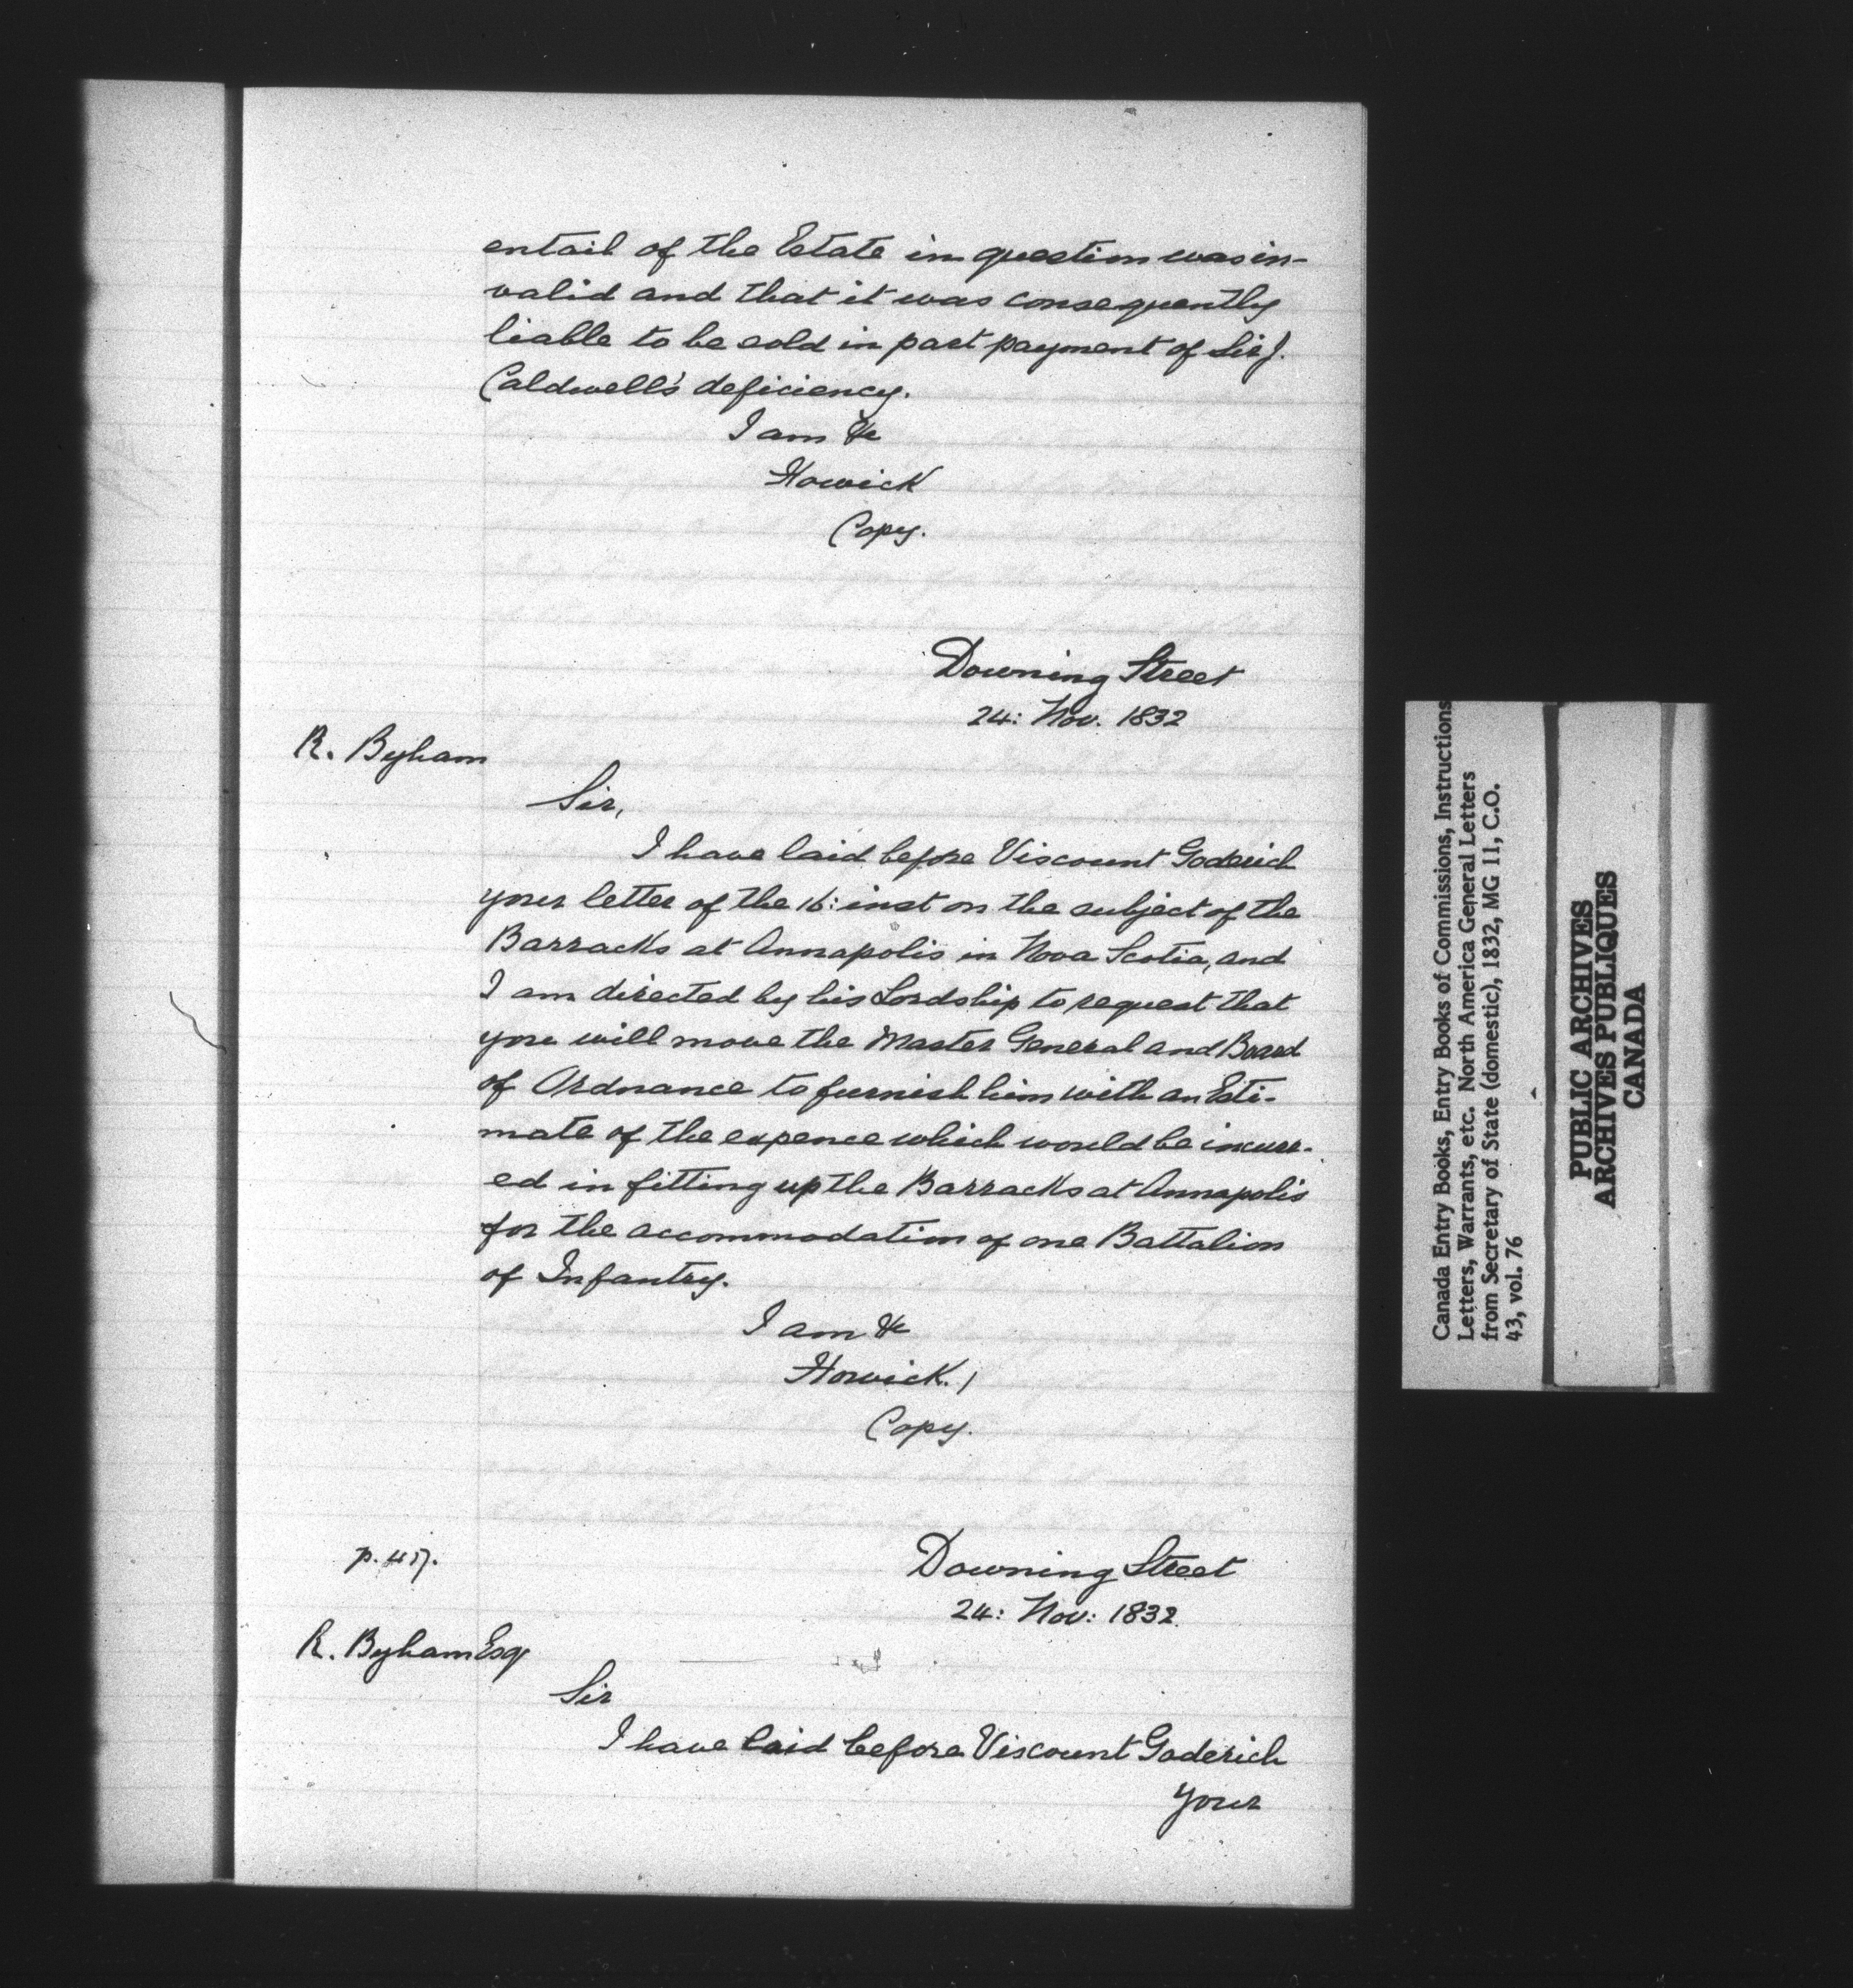 entail of the Estate in question was in-
valid and that it was consequently
liable to be sold in part payment of Sir J.
Caldwell's deficiency.
I am &c
Howick
Copy.
Downing Street
24: Nov. 1832
R. Byham
Sir,
I have laid before Viscount Goderich
your letter of the 16: inst on the subject of the
Barracks at Annapolis in Nova Scotia, and
I am directed by his Lordship to request that
you will move the Master General and Board
of Ordnance to furnish him with an Esti-
mate of the expence which would be incurr-
ed in fitting up the Barracks at Annapolis
for the accommodation of one Battalion
of Infantry.
I am &c
Howick.)
Copy.
p. 417.
Downing Street
24: Nov: 1832.
R. Byham Esq
Sir
I have laid before Viscount Goderich
your
Canada Entry Books, Entry Books of Commissions, Instructions
Letters, Warrants, etc. North America General Letters
from Secretary of State (domestic), 1832, MG 11, C.O.
43, vol. 76
PUBLIC ARCHIVES
ARCHIVES PUBLIQUES
CANADA